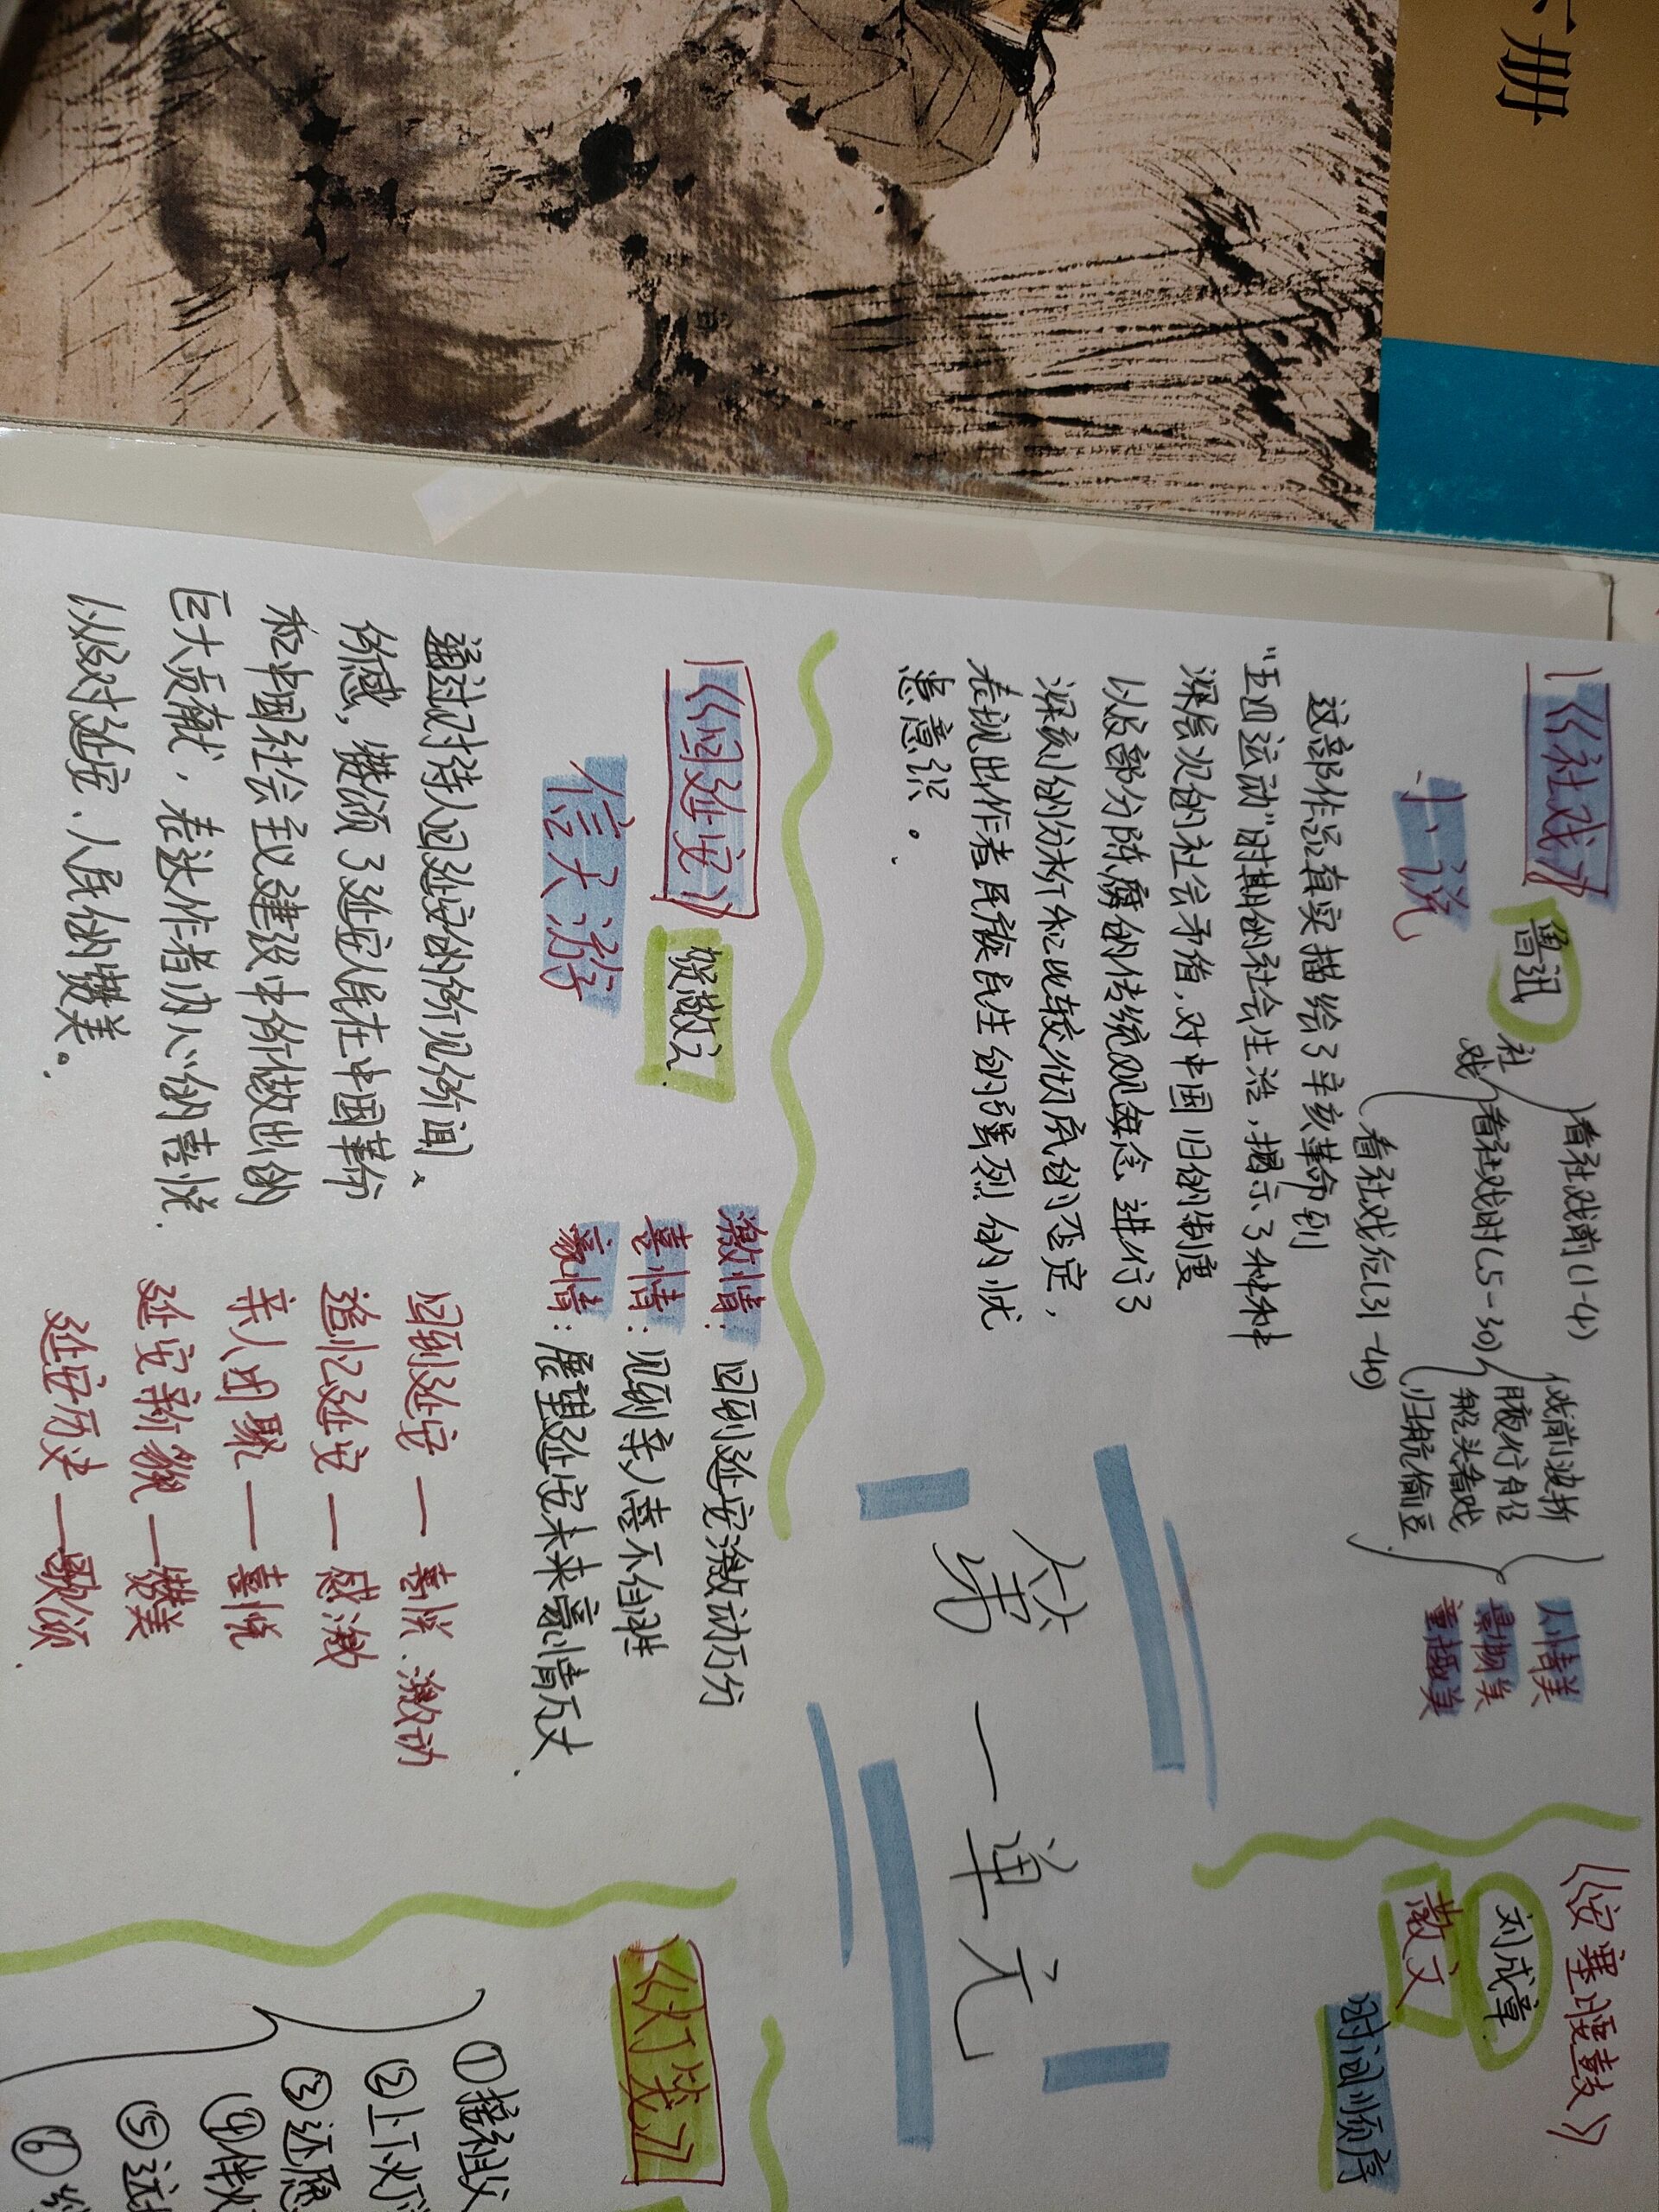 册
《社戏》
鲁迅
小说
社戏
看社戏前(1-4)
看社戏时(5-30)
看社戏后(31-40)
戏前波折
船头看戏
归航偷豆
人情美
景物美
童趣美
这部作品真实描绘了辛亥革命到
"五四运动"时期的社会生活,揭示了种种
深层次的社会矛盾,对中国旧的制度
以及部分陈腐的传统观念进行了
深刻的分析和比较彻底的否定,
表现出作者民族民生的强烈的忧
患意识。
《回延安》
贺敬之
信天游
通过对诗人回延安的所见所闻、
所感,赞颂了延安人民在中国革命
和中国社会主义建设中所做出的
巨大贡献,表达作者内心的喜悦
以及对延安、人民的赞美。
激情:回到延安激动万分
喜情:见到亲人喜不自胜
豪情:展望延安未来豪情万丈
回到延安—喜悦、激动
追忆延安—感激
亲人团聚—喜悦
延安新貌—赞美
延安历史—歌颂
第一单元
《安塞腰鼓》
刘成章
散文
时间顺序
《灯笼》
①接祖父
②上下灯
③还愿
④伴
⑤远
⑥